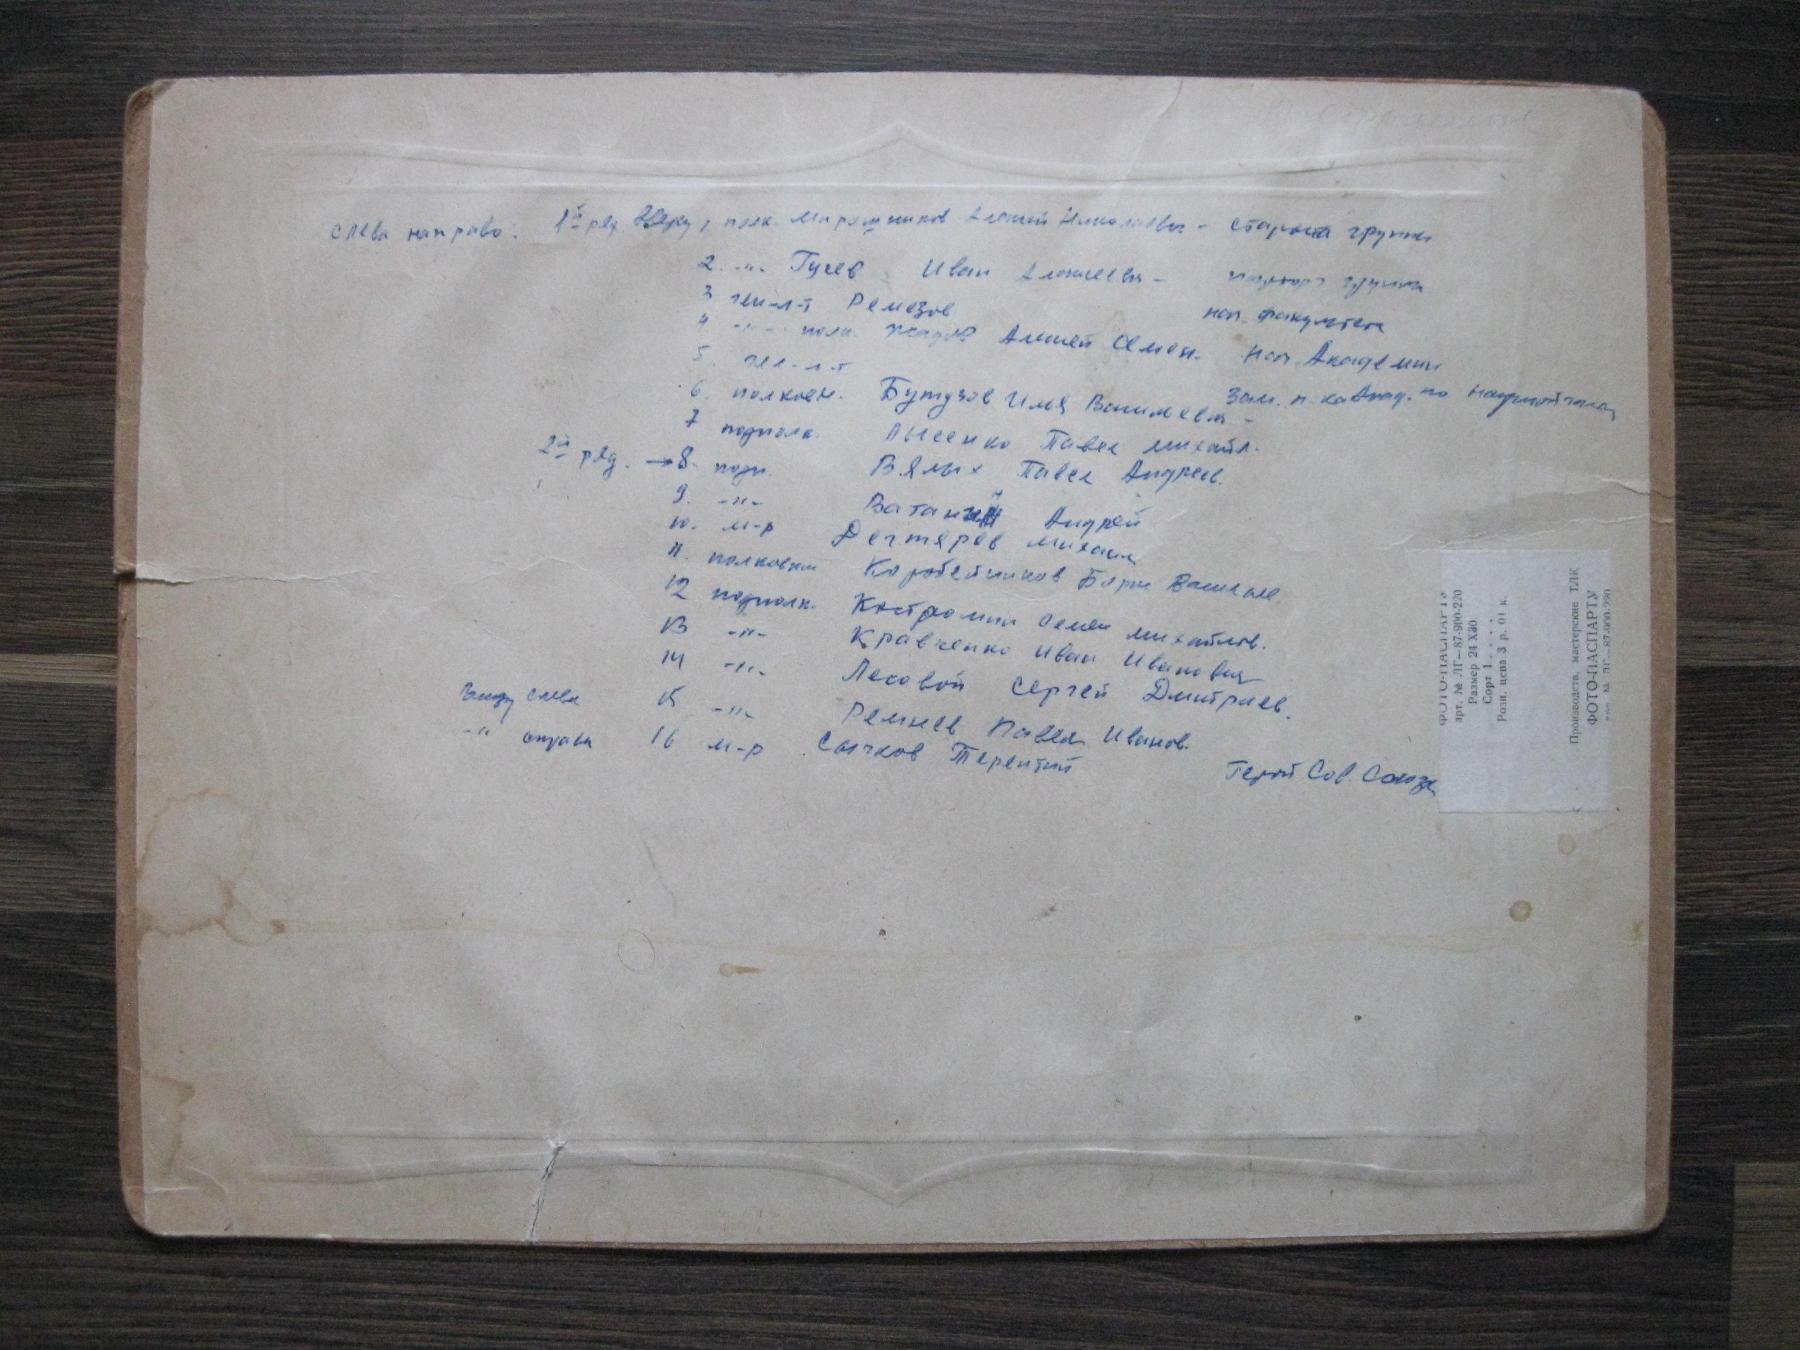 слева направо. 1й ряд сверху, полк. Мирошников Алексей Николаевич - староста группы
2. -"- Гусев Иван Алексеевич - парторг группы
3 ген-л-т Ремезов нач. факультета
4 -"- полк. Жадов Алексей Семен. Нач. Академии
5. ген-л-т Зам. н-ка Акад. по научной части
6. полковн. Бутузов Илья Васильевич -
7 подполк. Лысенко Павел Михайл.
2й ряд. → 8. подп. Вялых Павел Андреев.
9. -"- Андрей
10. м-р Дегтярев Михаил
11. полковник Коробейников Борис Василье
12 подполк. Костромин Семен Михайлов.
13 -"- Кравченко Иван Иванович
14 -"- Лесовой Сергей Дмитриев.
Внизу слева 15 -"- Ремнев Павел Иванов.
-"- справа 16 м-р Сычков Терентий Герой Сов. Союза
ФОТО-ПАСПАРТУ
арт. № ЛГ—87-900-220
Размер 24 X 30
Сорт 1 . . . .
Розн. цена 3 р. 01 к.
Производств. мастерские ТЛК
ФОТО-ПАСПАРТУ